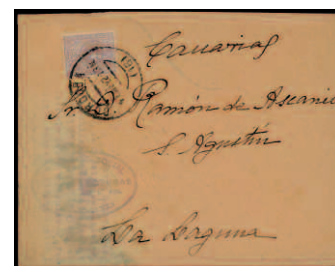 Canarias
Sr. Ramón de Ascanio
S. Agustín
La Laguna